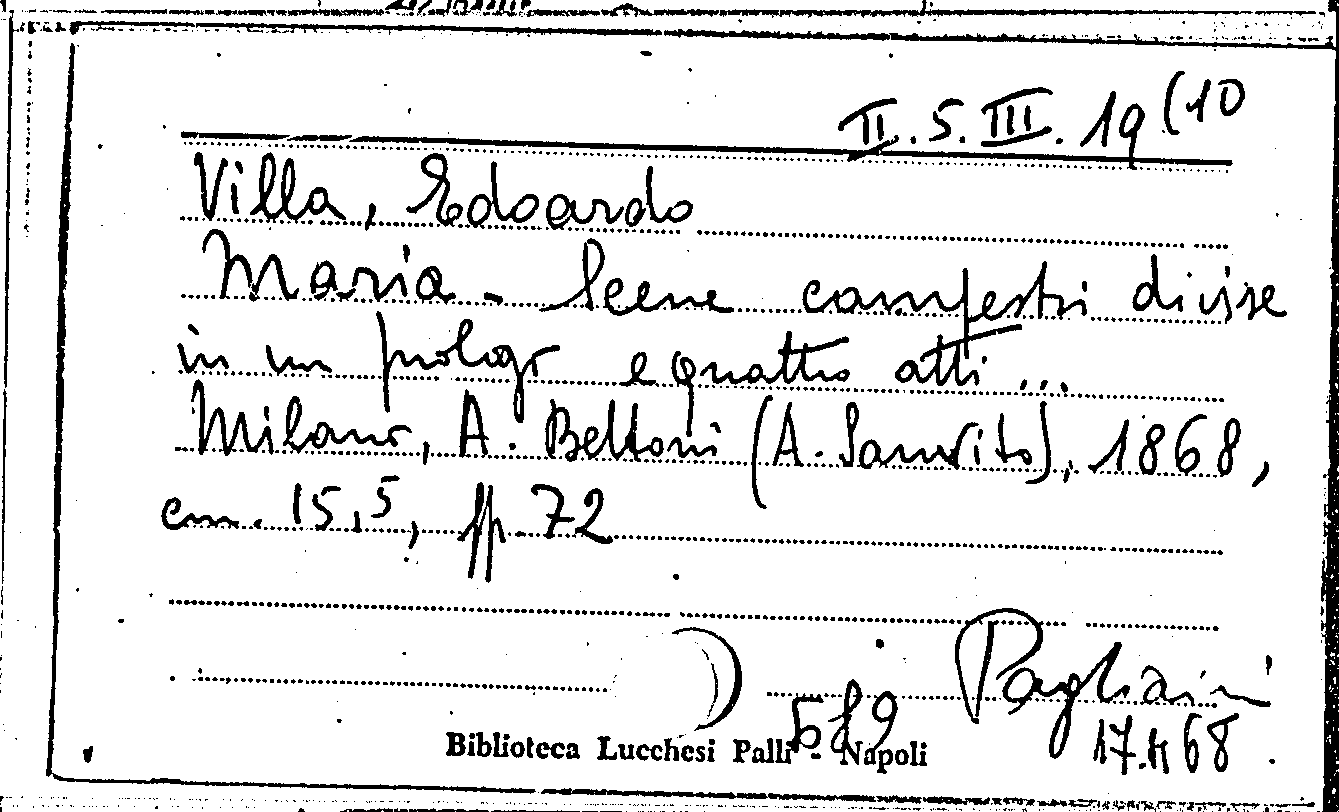 II. 5. III. 19 (10
Villa, Edoardo
Maria - Scene campestri divise
in un prologo e quattro atti ...
Milano, A. Bettoni (A. Sanvito), 1868,
cm. 15,5, pp. 72
Pagliaini
589
Biblioteca Lucchesi Palli - Napoli